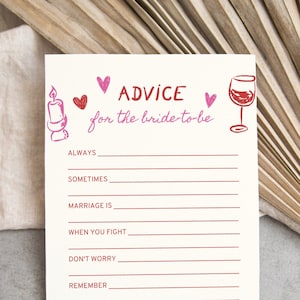 ADVICE
for the bride-to-be
ALWAYS
SOMETIMES
MARRIAGE IS
WHEN YOU FIGHT
DON'T WORRY
REMEMBER